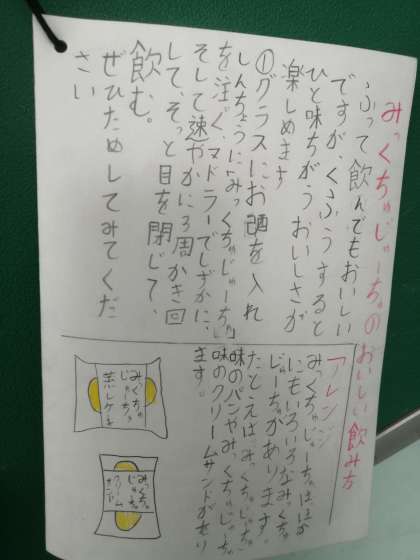 みっくちゃじゅーちゅのおいしい飲み方
ふって飲んでもおいしい
ですが、くふうすると
ひと味ちがうおいしさが
楽しめます
①グラスにお酒を入れ
しんちょうに「みっくちゃじゅーちゅ」
を注ぐ、マドラーでしずかに、
そして速やかに3周かき回
して、そっと目を閉じて、
飲む。
ぜひためしてみてくだ
さい
アレンジ
みっくちゃじゅーちゅはほか
にもいろいろなみっくちゃ
じゅーちゅがあります。
たとえば、みっくちゃじゅーちゅ
味のパンやみっくちゃじゅーちゅ
味のクリームサンドがあり
ます。
みっくちゃ
じゅーちゅ
蒸しケーキ
みっくちゃ
じゅーちゅ
クリーム
サンド